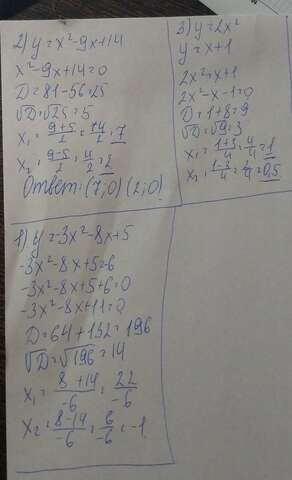 2) y = x² - 9x + 14
x² - 9x + 14 = 0
D = 81 - 56 = 25
√D = √25 = 5
x₁ = (9+5)/2 = 14/2 = 7
x₂ = (9-5)/2 = 4/2 = 2
Ответ: (7;0) (2;0)
3) y = 2x²
y = x + 1
2x² = x + 1
2x² - x - 1 = 0
D = 1 + 8 = 9
√D = √9 = 3
x₁ = (1+3)/4 = 4/4 = 1
1) y = -3x² - 8x + 5
-3x² - 8x + 5 = -6
-3x² - 8x + 5 + 6 = 0
-3x² - 8x + 11 = 0
D = 64 + 132 = 196
√D = √196 = 14
x₁ = (8+14)/-6 = 22/-6
x₂ = (8-14)/-6 = 6/-6 = -1